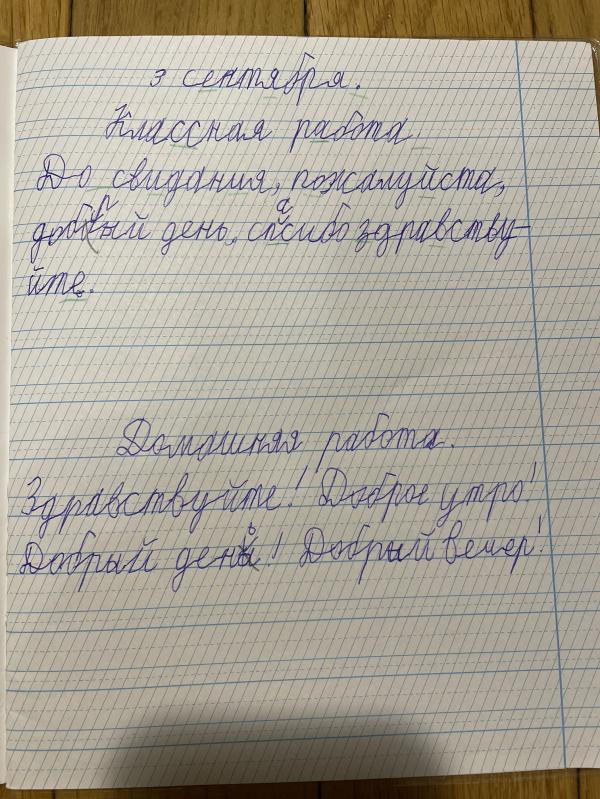 3 сентября.
Классная работа
До свидания, пожалуйста,
добрый день, спасибо здравству-
йте.
Домашняя работа.
Здравствуйте! Доброе утро!
Добрый день! Добрый вечер!